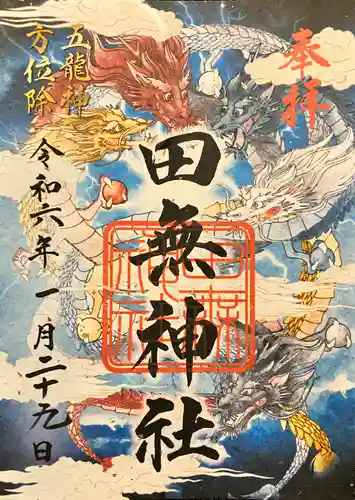 奉拝
田無神社
五龍神
方位除
令和六年一月二十九日
田無神社